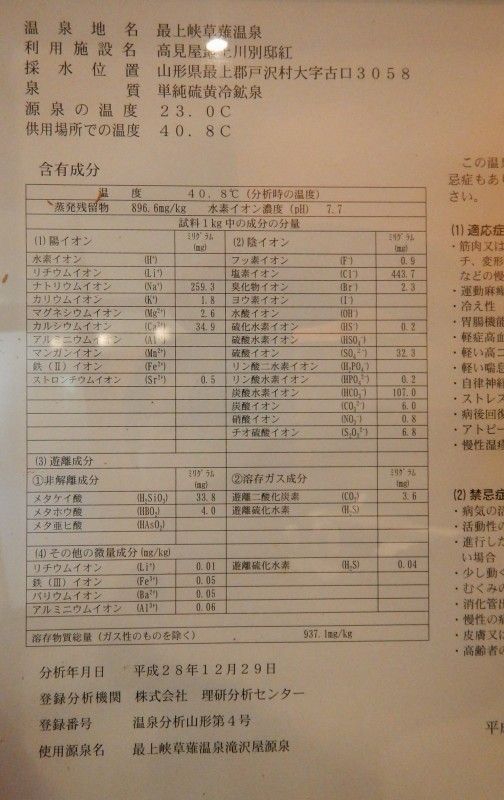 温泉地名　最上峡草薙温泉
利用施設名　高見屋最上川別邸紅
採水位置　山形県最上郡戸沢村大字古口３０５８
泉質　単純硫黄冷鉱泉
源泉の温度　２３．０Ｃ
供用場所での温度　４０．８Ｃ
含有成分
温度　４０．８℃（分析時の温度）
蒸発残留物　896.6mg/kg　水素イオン濃度（pH）　7.7
試料１kg中の成分の分量
(1)陽イオン　ミリグラム(mg)　(2)陰イオン　ミリグラム(mg)
水素イオン　(H⁺)　フッ素イオン　(F⁻)　0.9
リチウムイオン　(Li⁺)　塩素イオン　(Cl⁻)　443.7
ナトリウムイオン　(Na⁺)　259.3　臭化物イオン　(Br⁻)　2.3
カリウムイオン　(K⁺)　1.8　ヨウ素イオン　(I⁻)
マグネシウムイオン　(Mg²⁺)　2.6　水酸イオン　(OH⁻)
カルシウムイオン　(Ca²⁺)　34.9　硫化水素イオン　(HS⁻)　0.2
アルミニウムイオン　(Al³⁺)　硫酸水素イオン　(HSO₄⁻)
マンガンイオン　(Mn²⁺)　硫酸イオン　(SO₄²⁻)　32.3
鉄（Ⅱ）イオン　(Fe²⁺)　リン酸二水素イオン　(H₂PO₄⁻)
ストロンチウムイオン　(Sr²⁺)　0.5　リン酸水素イオン　(HPO₄²⁻)　0.2
炭酸水素イオン　(HCO₃⁻)　107.0
炭酸イオン　(CO₃²⁻)　6.0
硝酸イオン　(NO₃⁻)　0.8
チオ硫酸イオン　(S₂O₃²⁻)　6.8
(3)遊離成分
①非解離成分　ミリグラム(mg)　②溶存ガス成分　ミリグラム(mg)
メタケイ酸　(H₂SiO₃)　33.8　遊離二酸化炭素　(CO₂)　3.6
メタホウ酸　(HBO₂)　4.0　遊離硫化水素　(H₂S)
メタ亜ヒ酸　(HAsO₂)
(4)その他の微量成分(mg/kg)
リチウムイオン　(Li⁺)　0.01　遊離硫化水素　(H₂S)　0.04
鉄（Ⅲ）イオン　(Fe³⁺)　0.05
バリウムイオン　(Ba²⁺)　0.05
アルミニウムイオン　(Al³⁺)　0.06
溶存物質総量（ガス性のものを除く）　937.1mg/kg
分析年月日　平成２８年１２月２９日
登録分析機関　株式会社　理研分析センター
登録番号　温泉分析山形第４号
使用源泉名　最上峡草薙温泉滝沢屋源泉
この温
忌症もあり
さい。
(1) 適応症
・筋肉又は
チ、変形
などの慢
・運動麻痺
・冷え性
・胃腸機能
・軽症高血
・軽い高コ
・軽い喘息
・自律神経
・ストレス
・病後回復
・アトピー
・慢性湿疹
(2) 禁忌症
・病気の活
・活動性の
・進行した
い場合
・少し動く
・むくみの
・消化管出
・慢性の病
・皮膚又は
・高齢者の
平成